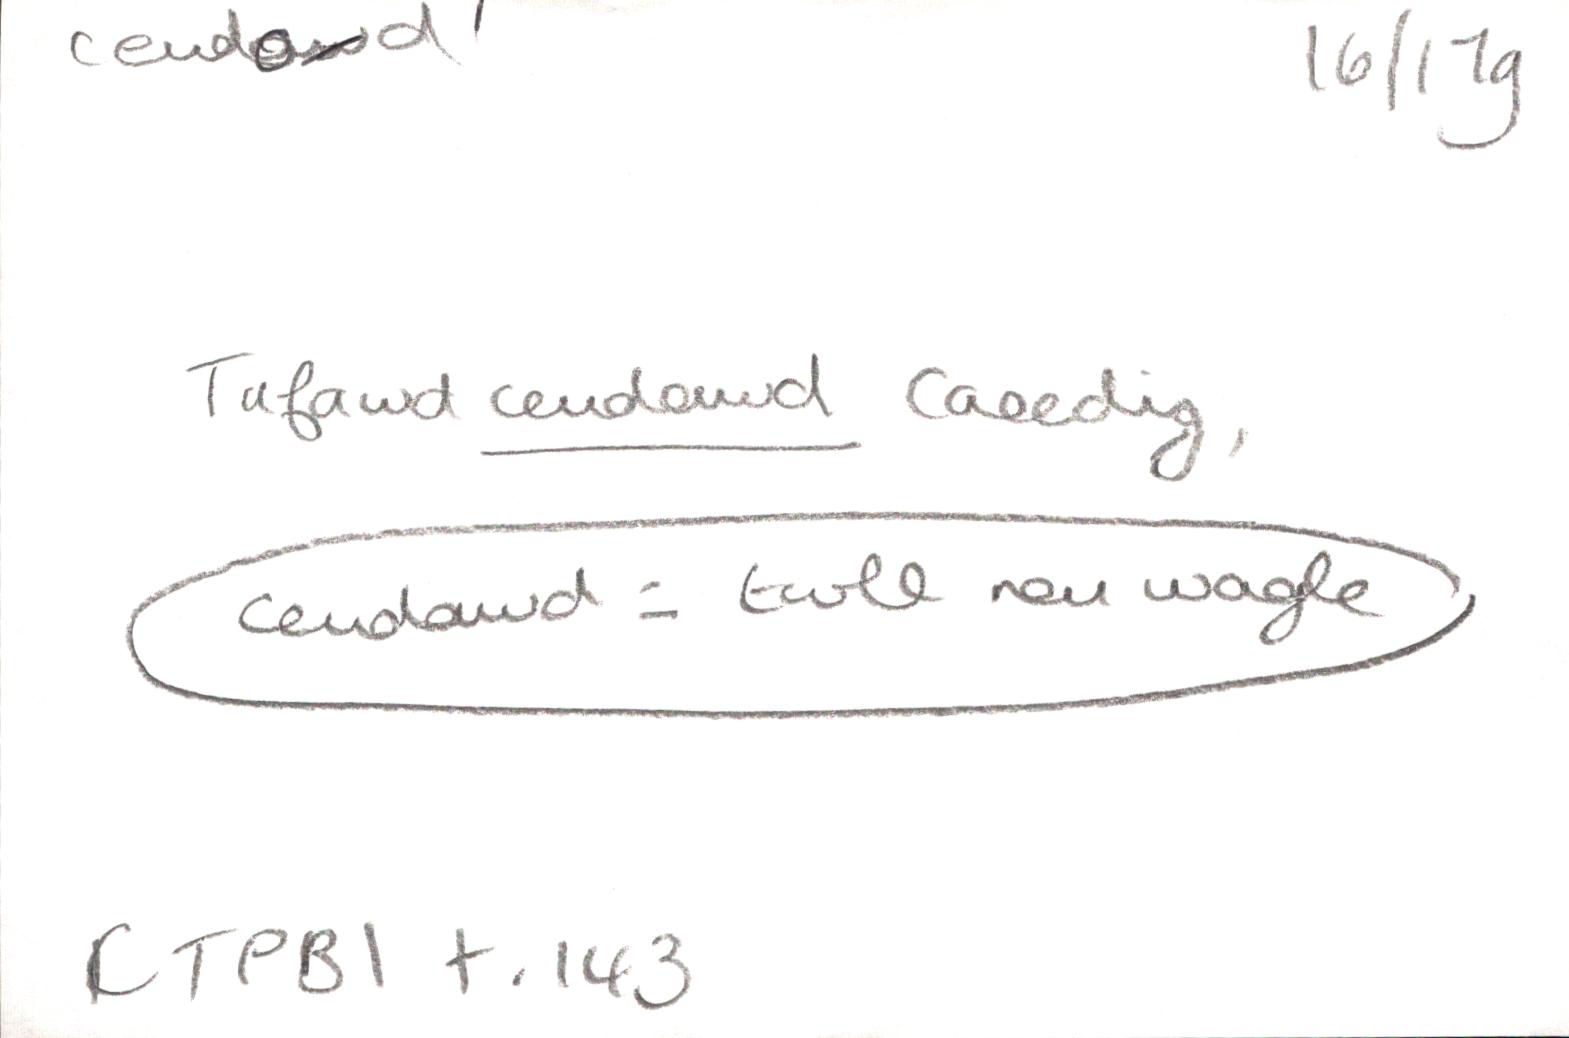 cendawd' 16/17g
Tafawd cendawd Caeedig,
cendawd = twll neu wagle
CTPB1 t.143